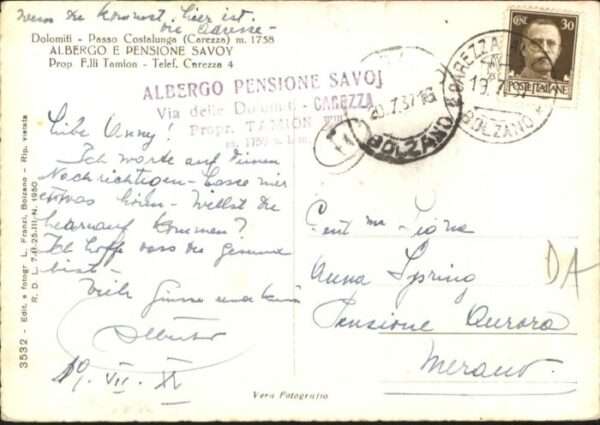 Wenn du kommst, hier ist
die Adresse-
Dolomiti - Passo Costalunga (Carezza) m. 1758
ALBERGO E PENSIONE SAVOY
Prop. F.lli Tamion - Telef. Carezza 4
ALBERGO PENSIONE SAVOJ
Via delle Dolomiti - CAREZZA
Propr. TAMION
m. 1758 s. l. m.
Liebe Anny!
Ich warte auf Deinen
Nachrichtigen - Lasse mir
etwas hören - Willst du
heurauf kommen?
Ich hoffe dass du gesund
bist -
Viele Grüsse und
Alberto
19. VII. XV
3532 - Edit. e fotogr. L. Franzi, Bolzano - Rip. vietata
R. D. L. 7-II-25-III-N. 1950.
CENT. 30
POSTE ITALIANE
CAREZZA
19.7.37
BOLZANO
20.7.37.16
BOLZANO
Gent ma Sigra
Anna Spring
Pensione Aurora
Merano.
DA
Vera Fotografia